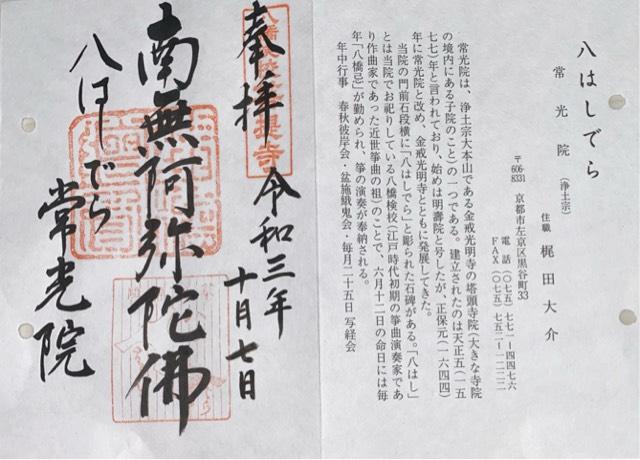 奉拝
令和三年
十月七日
南無阿弥陀佛
八はしでら
常光院
八はしでら
常光院（浄土宗）
住職 梶田大介
〒606-8331 京都市左京区黒谷町33
電話（〇七五）七七一－四四七六
FAX（〇七五）七五二－一二二二
常光院は、浄土宗大本山である金戒光明寺の塔頭寺院（大きな寺院
の境内にある子院のこと）の一つである。建立されたのは天正五（一五
七七）年と言われており、始めは明壽院と号したが、正保元（一六四四）
年に常光院と改め、金戒光明寺とともに発展してきた。
当院の門前石段横に「八はしでら」と彫られた石碑がある。「八はし」
とは当院でお祀りしている八橋検校（江戸時代初期の箏曲演奏家であ
り作曲家であった近世箏曲の祖）のことで、六月十二日の命日には毎
年「八橋忌」が勤められ、箏の演奏が奉納される。
年中行事 春秋彼岸会・盆施餓鬼会・毎月二十五日 写経会